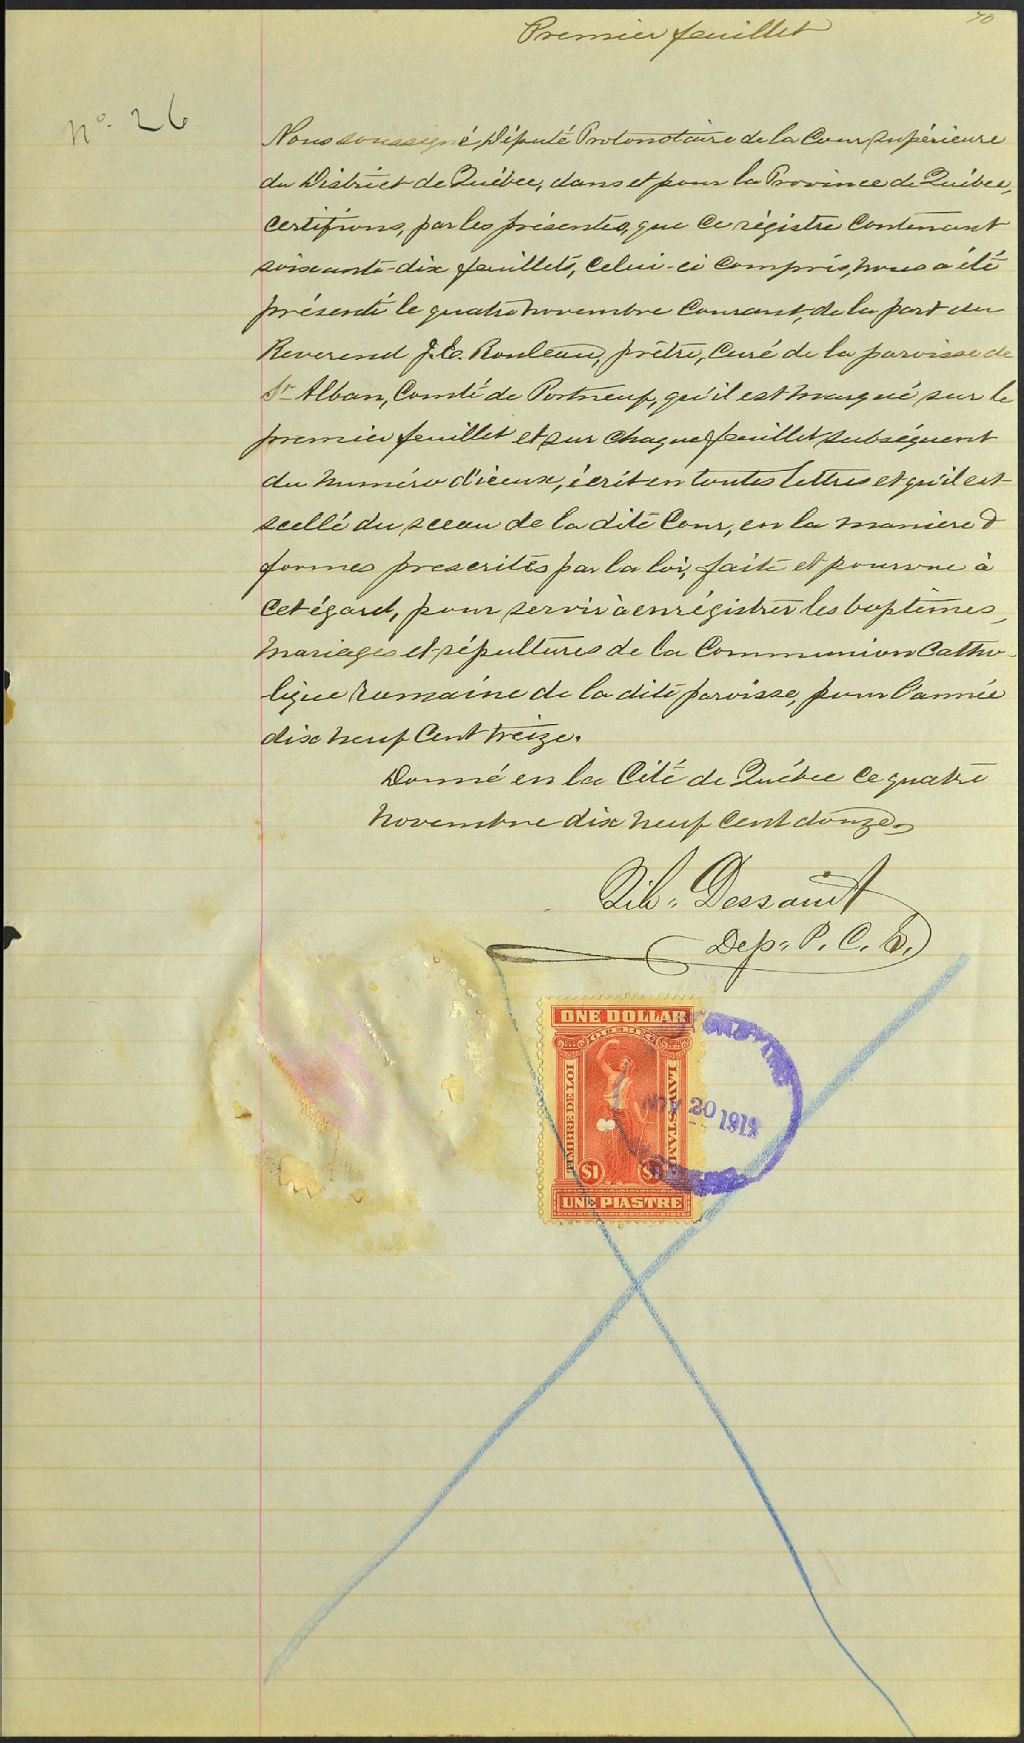 70
Premier feuillet
No. 26
Nous soussigné, Député Protonotaire de la Cour Supérieure
du District de Québec, dans et pour la Province de Québec,
certifions, par les présentes, que ce régistre contenant
soixante-dix feuillets, celui-ci compris, nous a été
présenté le quatre novembre courant, de la part du
Reverend J. E. Rouleau, prêtre, curé de la paroisse de
St Alban, Comté de Portneuf, qu'il est marqué sur le
premier feuillet et sur chaque feuillet subséquent
du numéro d'iceux, écrit en toutes lettres et qu'il est
scellé du sceau de la dite Cour, en la maniere &
formes prescrites par la loi, faite et pourvue à
cet égard, pour servir à enrégistrer les baptêmes,
mariages et sépultures de la Communion Catho-
lique Romaine de la dite paroisse, pour l'année
dix neuf cent treize.
Donné en la Cité de Québec ce quatre
novembre dix neuf cent douze.
Dessault
Dep. P. C. S.
ONE DOLLAR
QUEBEC
TIMBRE DE LOI
LAW STAMP
$1 $1
UNE PIASTRE
NOV 20 1912